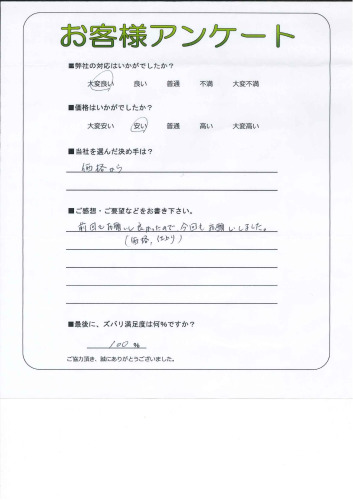 お客様アンケート
■弊社の対応はいかがでしたか？
大変良い 良い 普通 不満 大変不満
■価格はいかがでしたか？
大変安い 安い 普通 高い 大変高い
■当社を選んだ決め手は？
価格から
■ご感想・ご要望などをお書き下さい。
前回もお願いし良かったので、今回もお願いしました。
(価格,
■最後に、ズバリ満足度は何%ですか？
100 %
ご協力頂き、誠にありがとうございました。